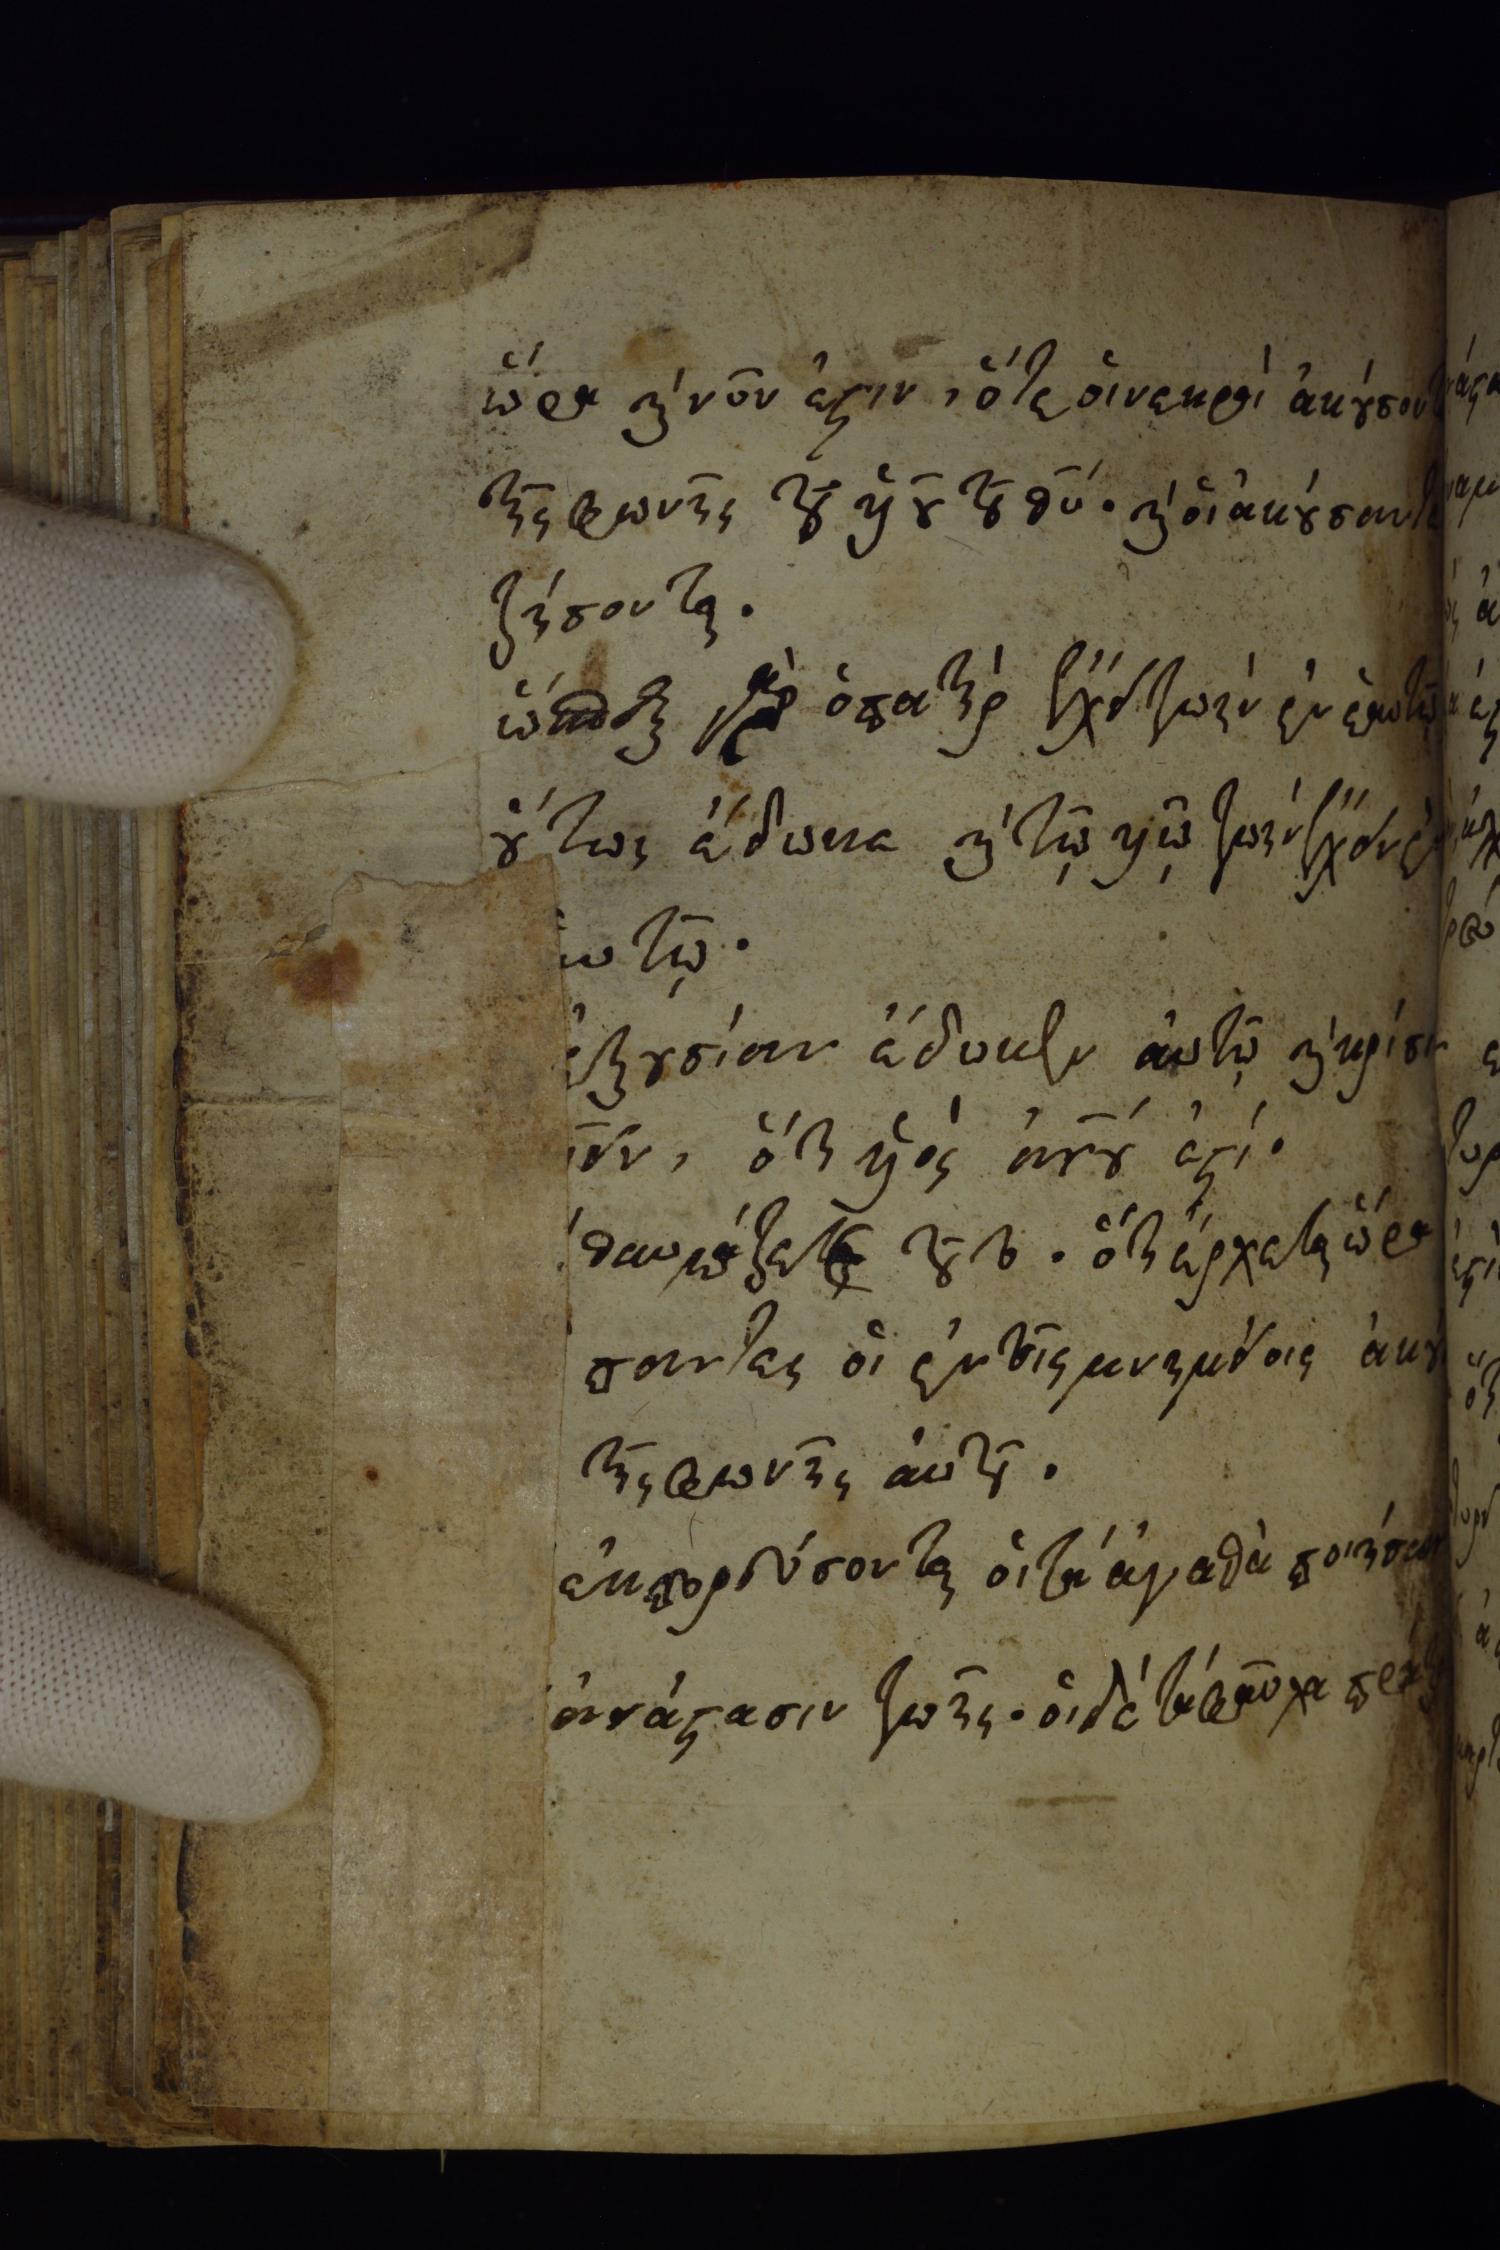 ὥρα κ νῦν ἐστιν, ὅτε ὁι νεκροὶ ἀκούσοντ
τῆς φωνῆς τοῦ ὑῦ τοῦ θυ. κ ὁι ἀκούσαντε
ζήσονται.
ὥσπερ γὰρ ὁ πατὴρ ἔχει ζωὴν ἐν ἑαυτῶ
οὕτως ἔδωκε κ τῶ υἱῶ ζωὴν ἔχειν ἐν
αυτῶ.
ἐξουσίαν ἔδωκεν ἀυτῶ κ κρίσιν
εῖν, ὅτι ὑὸς ἀνου ἐστί.
θαυμάζετε τοῦτο. ὅτι ἔρχεται ὥρα
παντες οἱ ἐν τοῖς μνημείοις ἀκού
τῆς φωνῆς ἀυτοῦ.
ἐκπορεύσονται ὁι τὰ ἀγαθὰ ποιήσαν
ἀνάστασιν ζωῆς. ὁι δὲ τὰ φαῦλα πρά